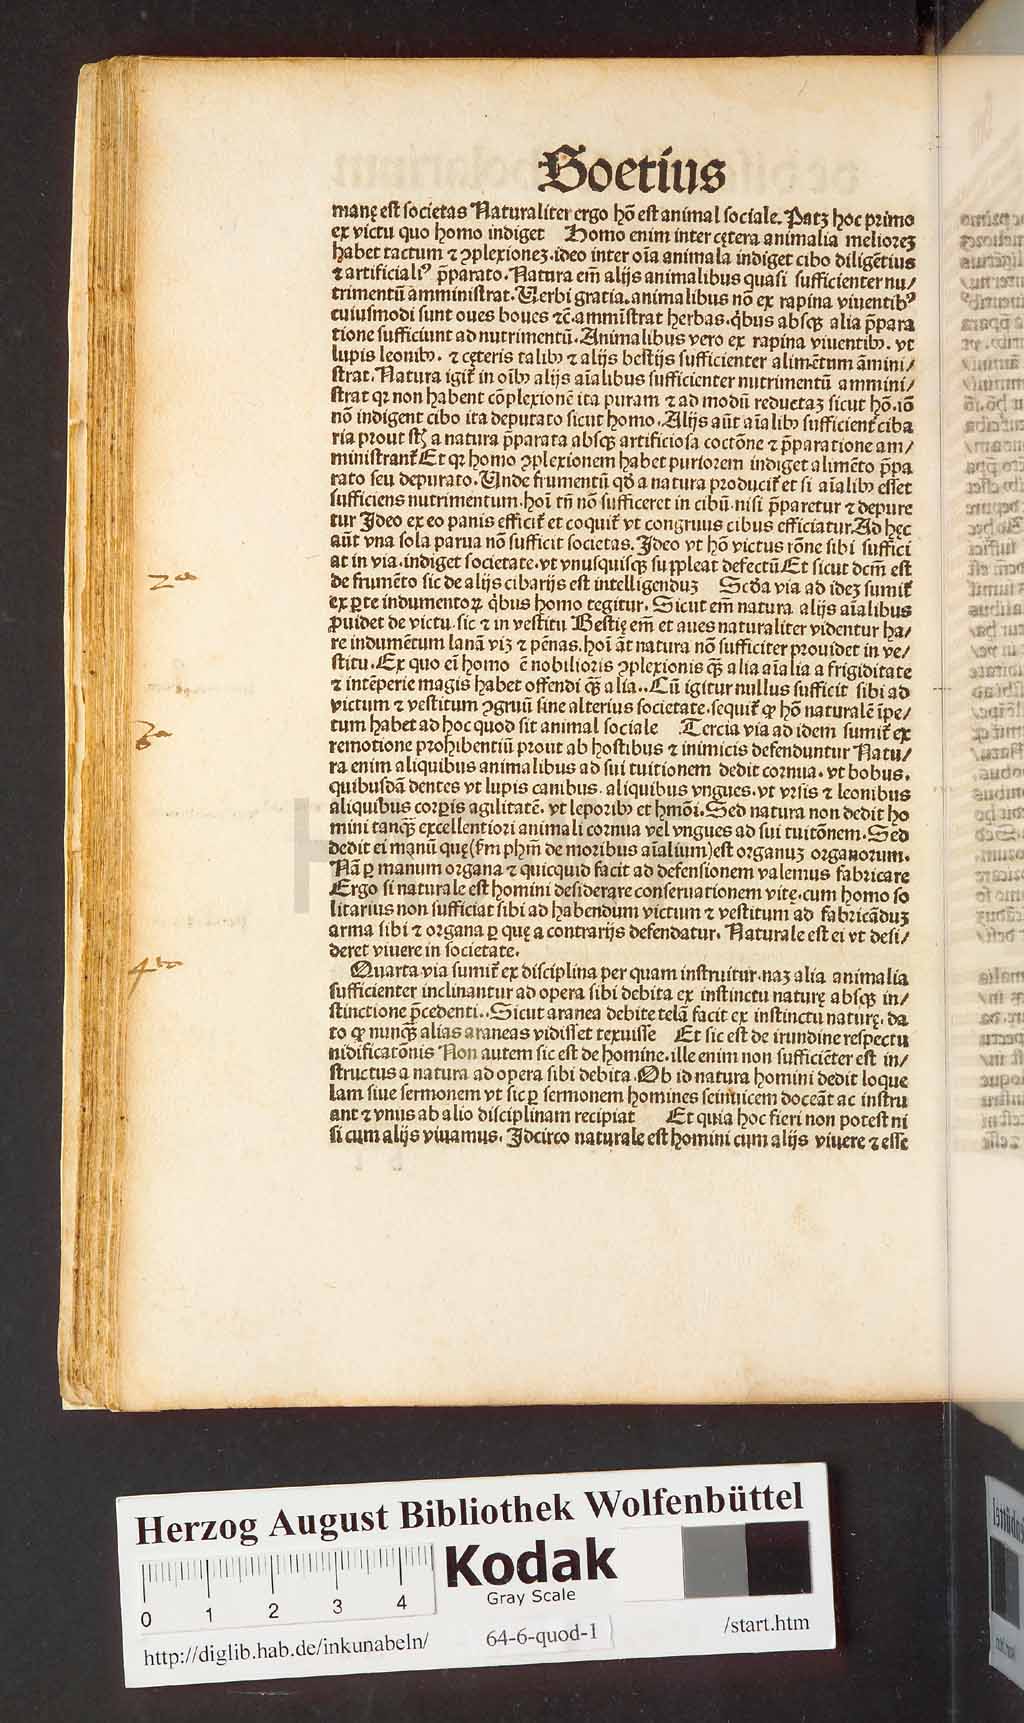 Boetius
manę est societas Naturaliter ergo hõ est animal sociale. Patꝫ hoc primo
ex victu quo homo indiget Homo enim inter cętera animalia melioreꝫ
habet tactum ⁊ ꝯplexioneꝫ.ideo inter oĩa animala indiget cibo diligẽtius
⁊ artificialiꝰ p̃parato. Natura em̃ alijs animalibus quasi sufficienter nu/
trimentũ amministrat. Verbi gratia.animalibus nõ ex rapina viuentibꝰ
cuiusmodi sunt oues boues ⁊c̃.ammĩstrat herbas.q̇bus absqꝫ alia p̃para
tione sufficiunt ad nutrimentũ. Animalibus vero ex rapina viuentibꝫ. vt
lupis leonibꝫ. ⁊ cęteris talibꝫ ⁊ alijs bestijs sufficienter alimẽtum ãmini/
strat. Natura igit̃ in oĩbꝫ alijs aĩalibus sufficienter nutrimentũ ammini/
strat qꝛ non habent cõplexionẽ ita puram ⁊ ad modũ reductaꝫ sicut hõ.iõ
nõ indigent cibo ita deputato sicut homo. Alijs aũt aĩalibꝫ sufficient̃ ciba
ria prout sꝫ a natura p̃parata absqꝫ artificiosa coctõne ⁊ p̃paratione am/
ministrant̃ Et qꝛ homo ꝯplexionem habet puriorem indiget alimẽto p̃pa
rato seu depurato. Unde frumentũ qð a natura producit̃ et si aĩalibꝫ esset
sufficiens nutrimentum.hoĩ tñ nõ sufficeret in cibũ.nisi p̃paretur ⁊ depure
tur Ideo ex eo panis efficit̃ et coquit̃ vt congruus cibus efficiatur. Ad hęc
aũt vna sola parua nõ sufficit societas. Ideo vt hõ victus rõne sibi suffici
at in via.indiget societate.vt vnusquisqꝫ suppleat defectũ Et sicut dcm̃ est
de frumẽto sic de alijs cibarijs est intelligenduꝫ Scða via ad ideꝫ sumit̃
ex ꝑte indumentoꝝ q̇bus homo tegitur. Sicut em̃ natura alijs aĩalibus
ꝓuidet de victu.sic ⁊ in vestitu Bestię em̃ et aues naturaliter videntur ha/
re indumẽtum lanã viꝫ ⁊ pẽnas.hoĩ ãt natura nõ sufficiter prouidet in ve/
stitu. Ex quo eĩ homo ẽ nobilioris ꝯplexionis qꝫ̃ alia aĩalia a frigiditate
⁊ intẽperie magis habet offendi qꝫ̃ alia.. Cũ igitur nullus sufficit sibi ad
victum ⁊ vestitum ꝯgruũ sine alterius societate.sequit̃ ꝙ hõ naturalẽ ĩpe/
tum habet ad hoc quod sit animal sociale Tercia via ad idem sumit̃ ex
remotione prohibentiũ prout ab hostibus ⁊ inimicis defenduntur Natu/
ra enim aliquibus animalibus ad sui tuitionem dedit cornua. vt bobus.
quibusdã dentes vt lupis canibus. aliquibus vngues.vt vrsis ⁊ leonibus
aliquibus corꝑis agilitatẽ. vt leporibꝫ et hmõi. Sed natura non dedit ho
mini tanqꝫ̃ excellentiori animali cornua vel vngues ad sui tuitõnem. Sed
dedit ei manũ quę(ẜm phm̃ de moribus aĩalium)est organuꝫ organorum.
Nã ꝑ manum organa ⁊ quicquid facit ad defensionem valemus fabricare
Ergo si naturale est homini desiderare conseruationem vitę.cum homo so
litarius non sufficiat sibi ad habendum victum ⁊ vestitum ad fabricãduꝫ
arma sibi ⁊ organa ꝑ quę a contrarijs defendatur. Naturale est ei vt desi/
deret viuere in societate.
Quarta via sumit̃ ex disciplina per quam instruitur.naꝫ alia animalia
sufficienter inclinantur ad opera sibi debita ex instinctu naturę absqꝫ in/
stinctione p̃cedenti.. Sicut aranea debite telã facit ex instinctu naturę. da
to ꝙ nunqꝫ̃ alias araneas vidisset texuisse Et sic est de irundine respectu
nidificatõnis Non autem sic est de homine.ille enim non sufficiẽter est in/
structus a natura ad opera sibi debita. Ob id natura homini dedit loque
lam siue sermonem vt sic ꝑ sermonem homines seinuicem doceãt ac instru
ant ⁊ vnus ab alio disciplinam recipiat Et quia hoc fieri non potest ni
si cum alijs viuamus. Idcirco naturale est homini cum alijs viuere ⁊ esse
2a
3a
4ta
Herzog August Bibliothek Wolfenbüttel
Kodak
Gray Scale
0 1 2 3 4
http://diglib.hab.de/inkunabeln/ 64-6-quod-1 /start.htm